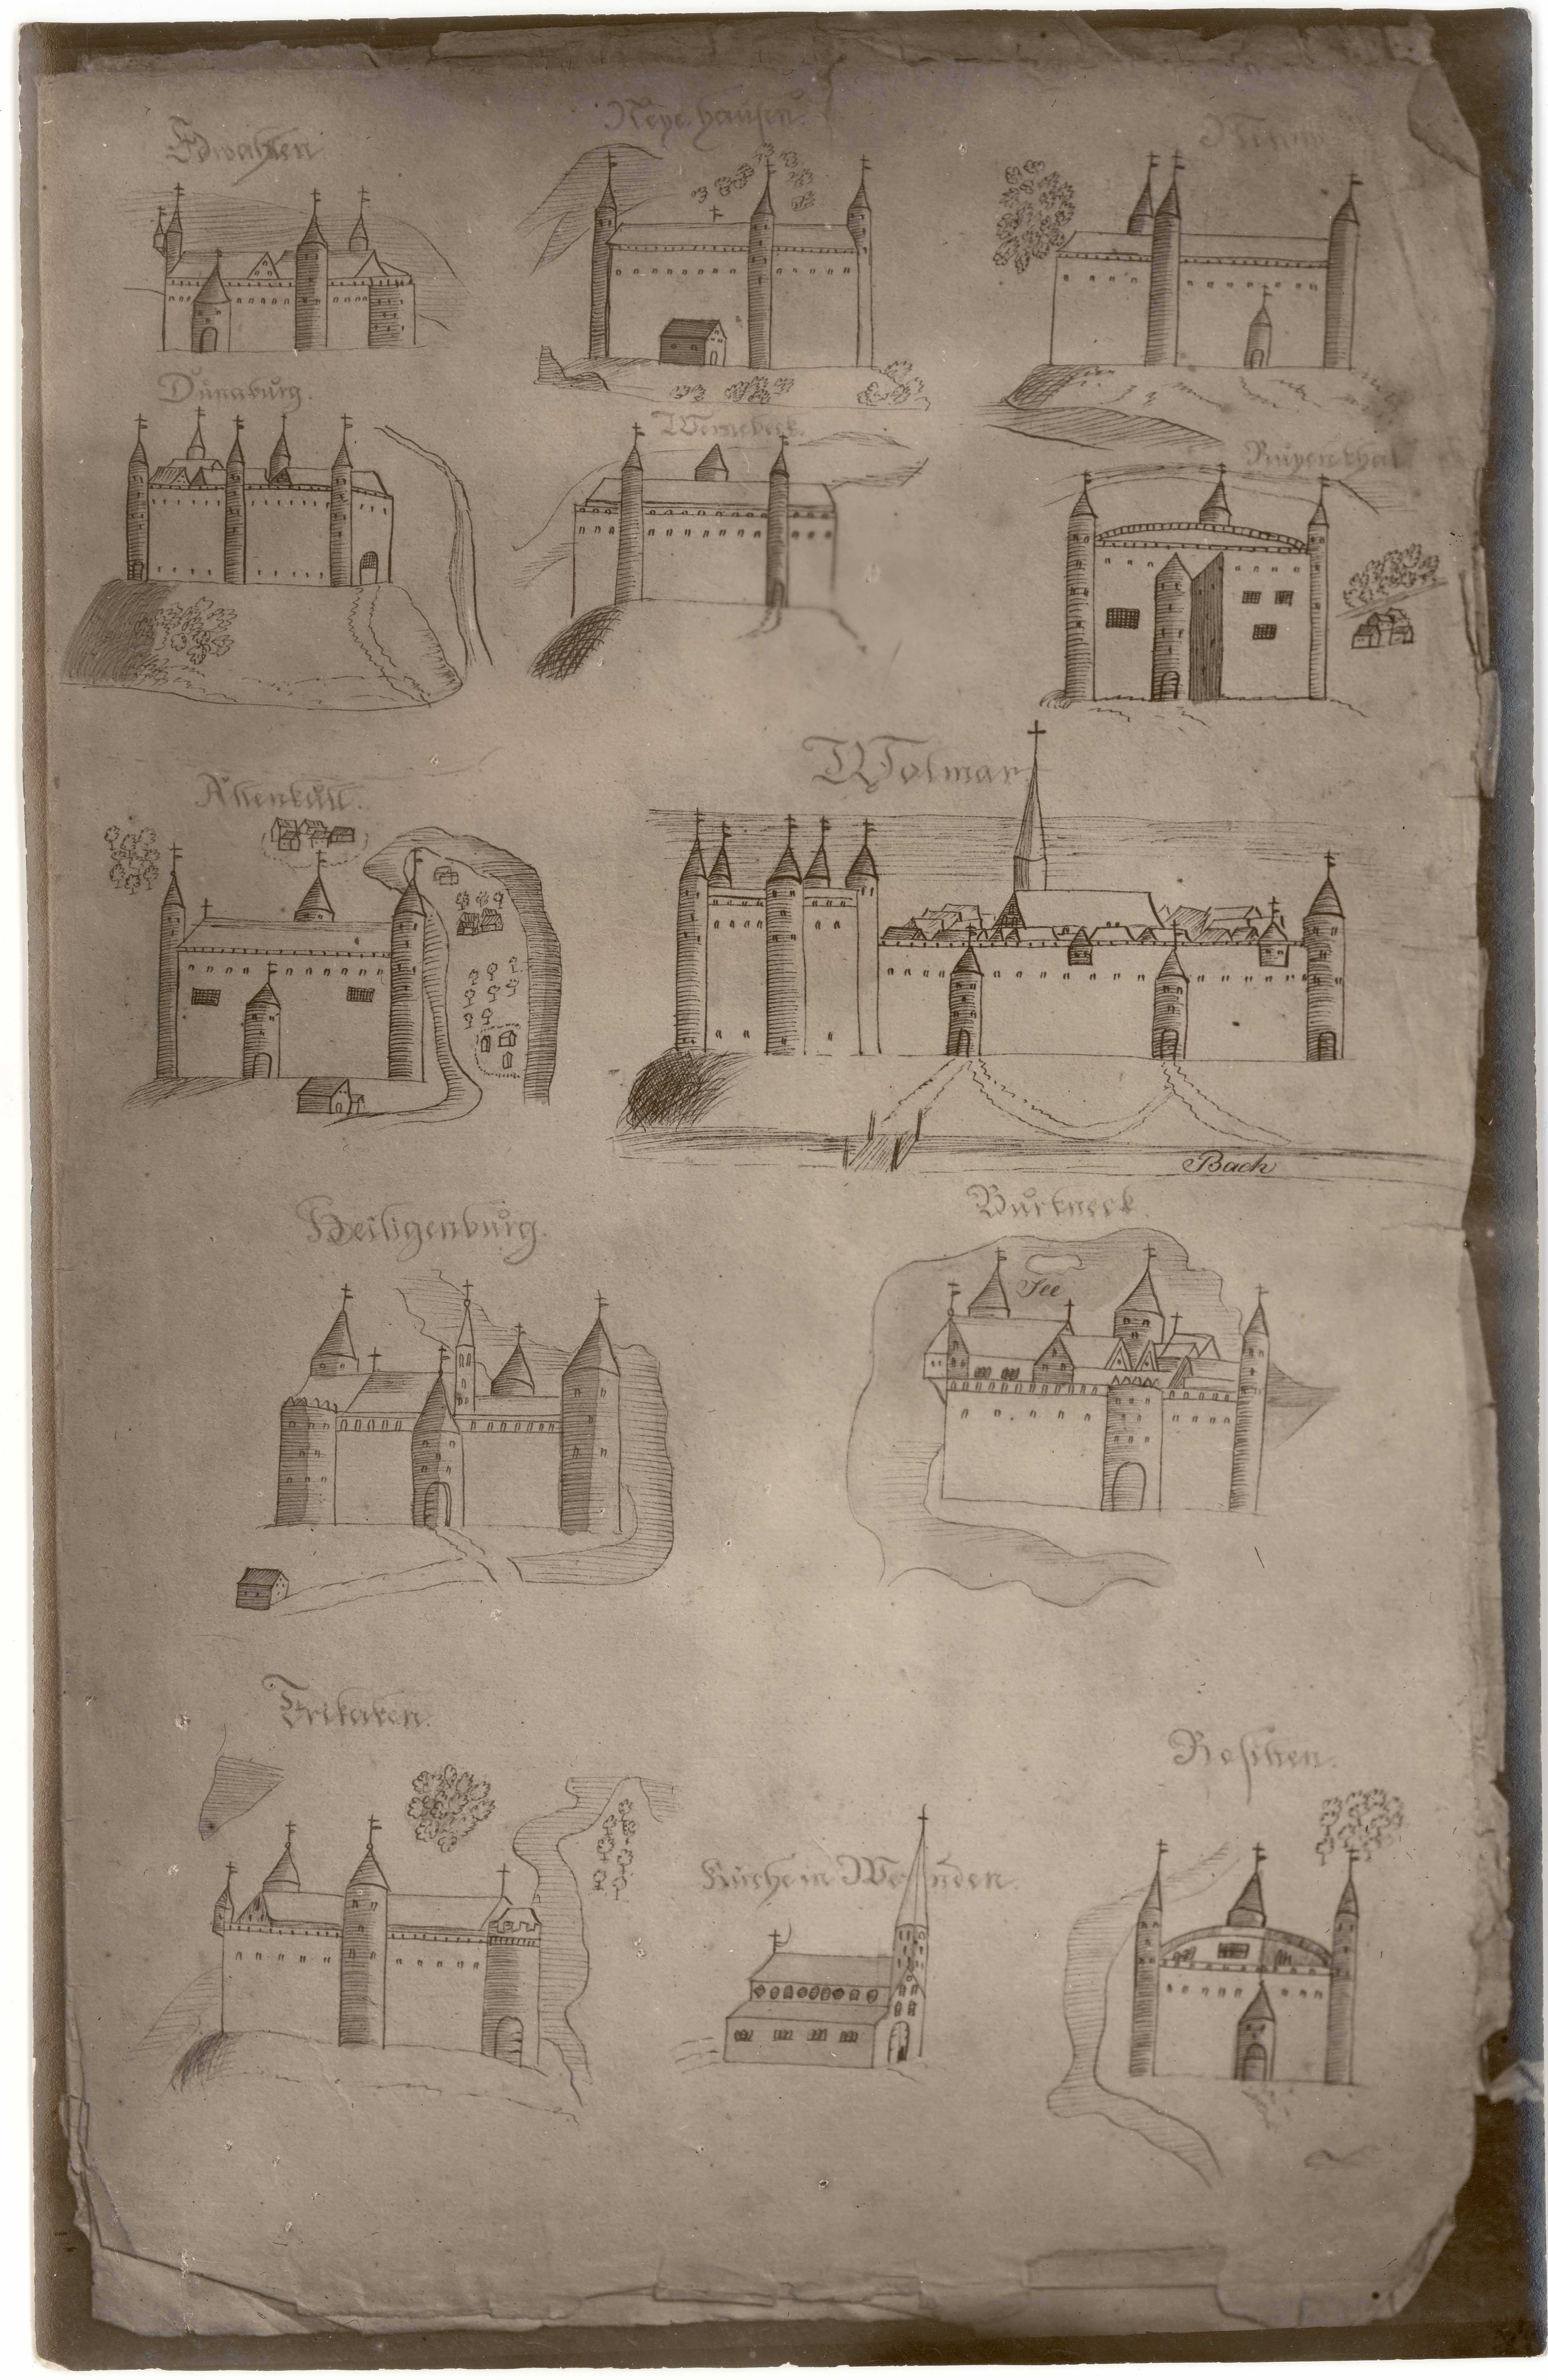 Edwahlen
Neye hausen.
Dünaburg.
Wernebeck.
Ruyenthal.
Altenküll.
Wolmar
Bach
Heiligenburg.
Burtneck.
See
Trikaten.
Kirche in Wenden.
Rositen.